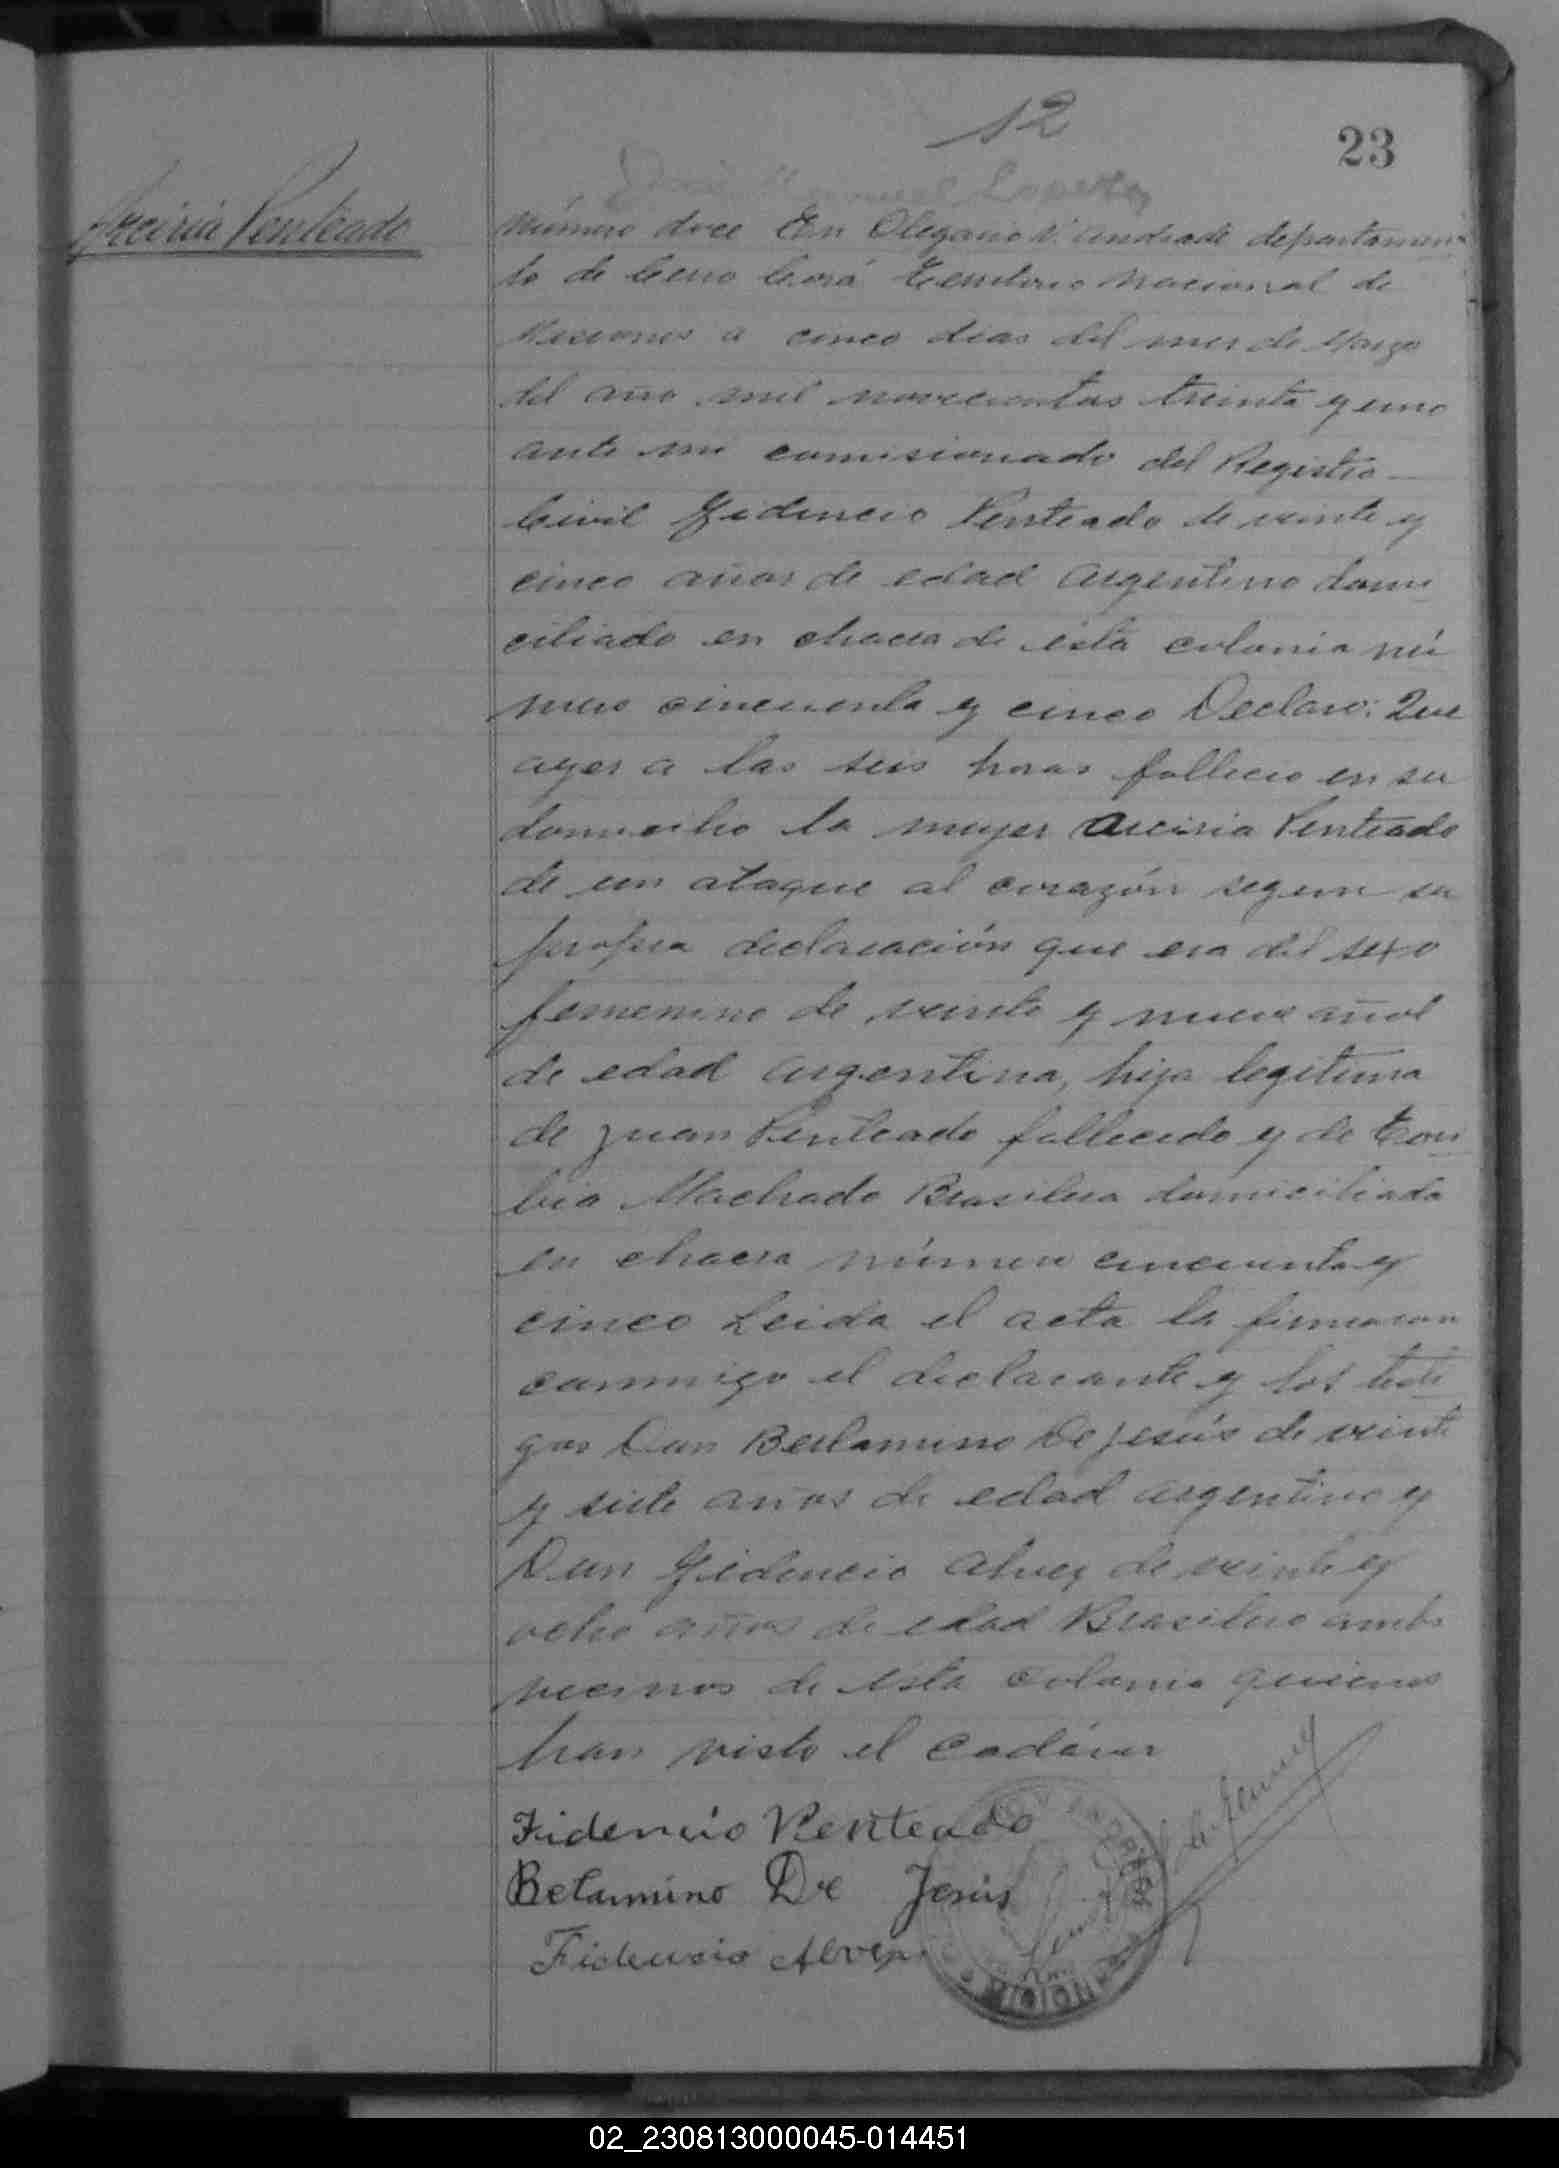 12
23
Penteado
Número doce En Olegario V. Andrade departamen
to de Cerro Corá Territorio Nacional de
Misiones a cinco dias del mes de Marzo
del año mil novecientos treinta y uno
ante mi comisionado del Registro
Civil Fidencio Penteado de veinte y
cinco años de edad argentino domi
ciliado en chacra de ésta colonia nú
mero cincuenta y cinco Declaro: Que
ayer a las seis horas fallecio en su
domicilio la mujer Arciria Penteado
de un ataque al corazón segun su
propia declaración que era del sexo
femenino de veinte y nueve años
de edad argentina, hija legitima
de Juan Penteado fallecido y de
Machado Brasilera domiciliada
en chacra número cincuenta y
cinco Leida el acta la firmaron
conmigo el declarante y los testi
gos Don Berlamino De Jesús de veinte
y siete años de edad argentino y
Don Fidencio Alvez de veinte y
ocho años de edad Brasilero ambos
vecinos de ésta colonia quienes
han visto el cadáver
Fidencio Penteado
Belarmino De Jesús
Fidencio Alvez
02_230813000045-014451